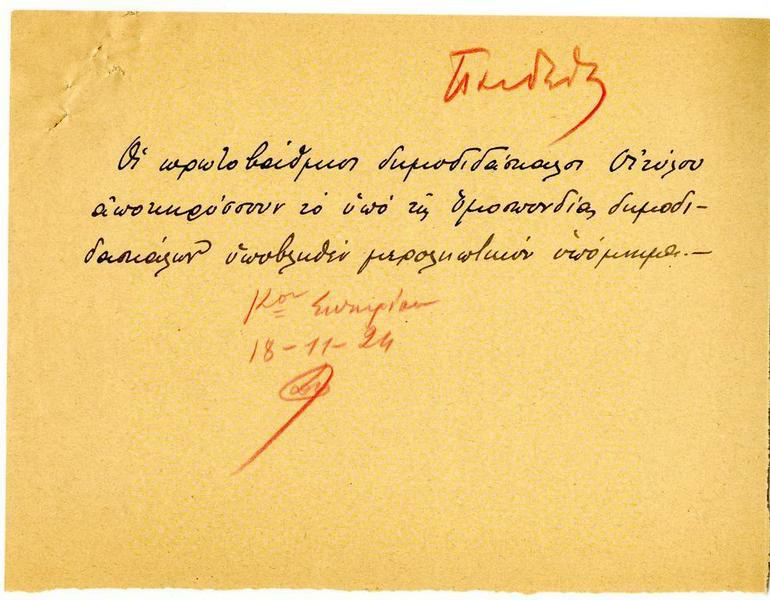 Οἱ πρωτοβάθμιοι δημοδιδάσκαλοι Οἰτύλου
ἀποκηρύσσουν τὸ ὑπὸ τῆς Ὁμοσπονδίας δημοδι-
δασκάλων ὑποβληθὲν μεροληπτικὸν ὑπόμνημα.—
Κον Σωτηρίου
18-11-24